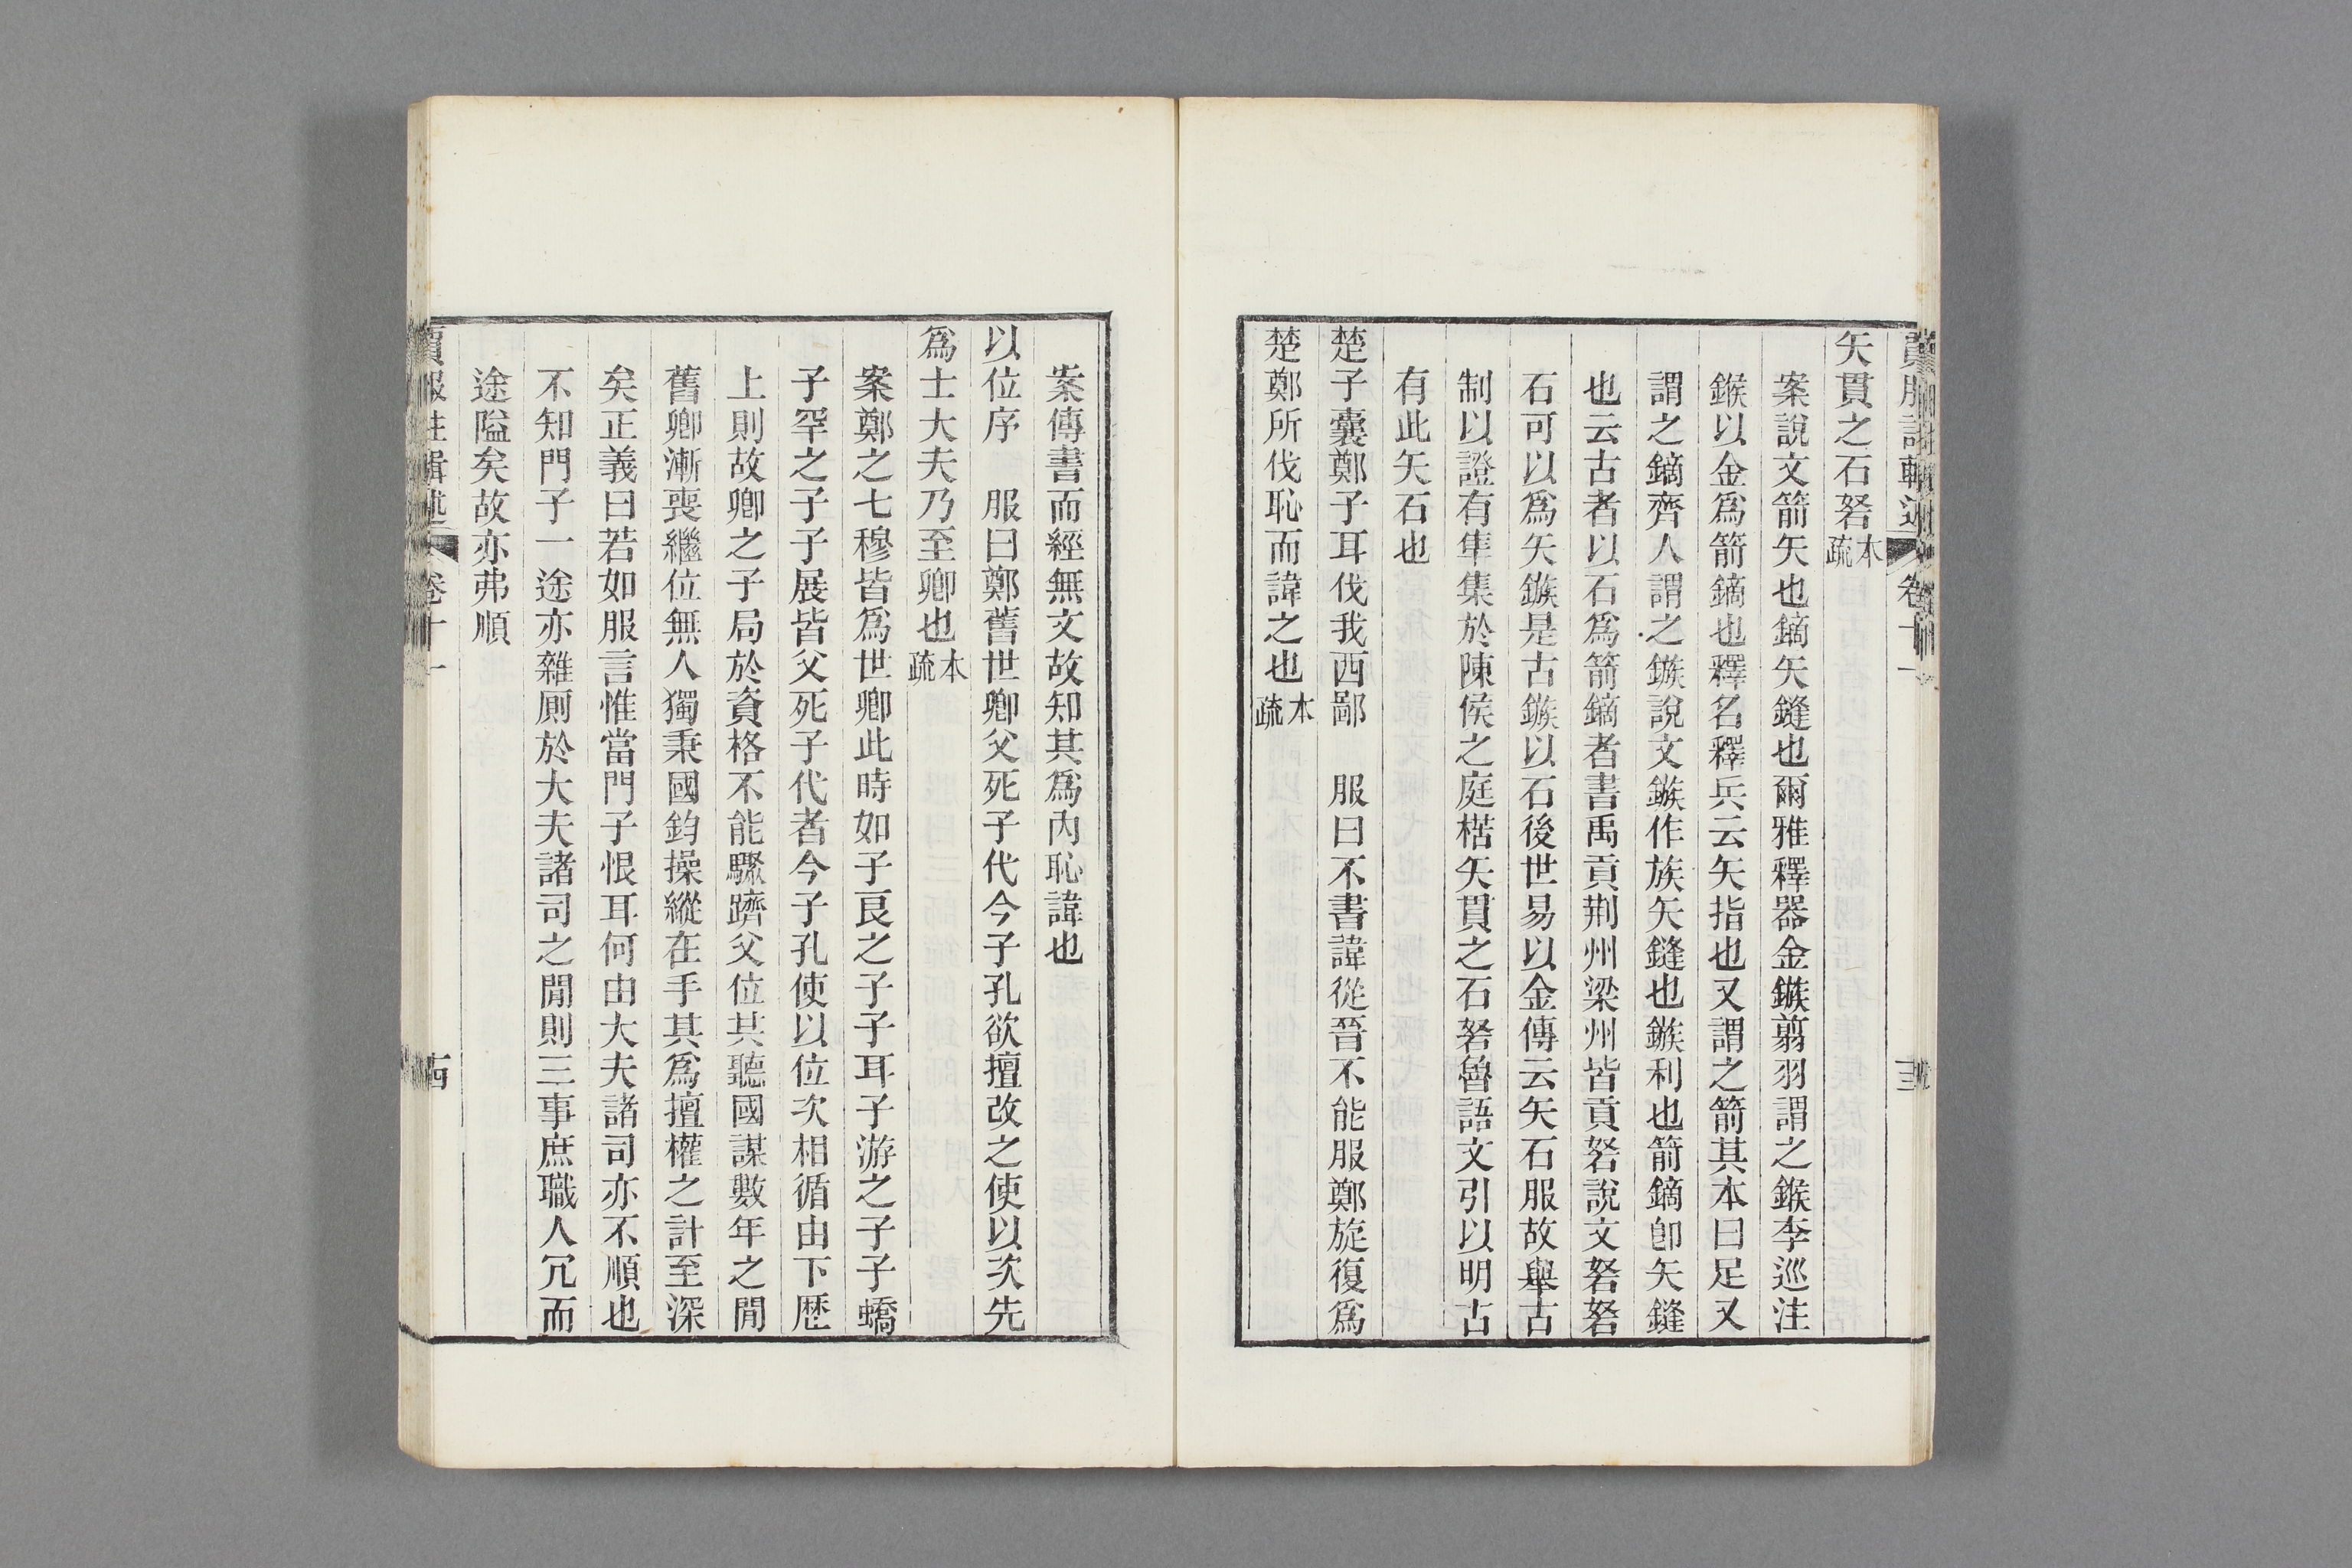 賈服註輯述 卷十一 三
矢貫之石砮本疏
案說文箭矢也鏑矢鏠也爾雅釋器金鏃翦羽謂之鍭李巡注
鍭以金爲箭鏑也釋名釋兵云矢指也又謂之箭其本曰足又
謂之鏑齊人謂之鏃說文鏃作族矢鏠也鏃利也箭鏑卽矢鏠
也云古者以石爲箭鏑者書禹貢荆州梁州皆貢砮說文砮砮
石可以爲矢鏃是古鏃以石後世易以金傳云矢石服故舉古
制以證有隼集於陳侯之庭楛矢貫之石砮魯語文引以明古
有此矢石也
楚子囊鄭子耳伐我西鄙　服曰不書諱從晉不能服鄭旋復爲
楚鄭所伐恥而諱之也本疏
案傳書而經無文故知其爲內恥諱也
以位序　服曰鄭舊世卿父死子代今子孔欲擅改之使以次先
爲士大夫乃至卿也本疏
案鄭之七穆皆爲世卿此時如子良之子子耳子游之子子蟜
子罕之子子展皆父死子代者今子孔使以位次相循由下歷
上則故卿之子局於資格不能驟躋父位其聽國謀數年之閒
舊卿漸喪繼位無人獨秉國鈞操縱在手其爲擅權之計至深
矣正義曰若如服言惟當門子恨耳何由大夫諸司亦不順也
不知門子一途亦雜厠於大夫諸司之閒則三事庶職人冗而
途隘矣故亦弗順
賈服註輯述 卷十一 十四